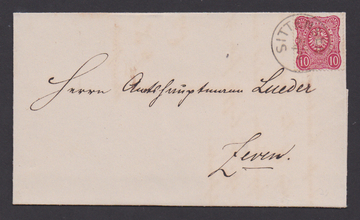 SITT
10 10
Herrn Amtshauptmann Lueder
Zeven.